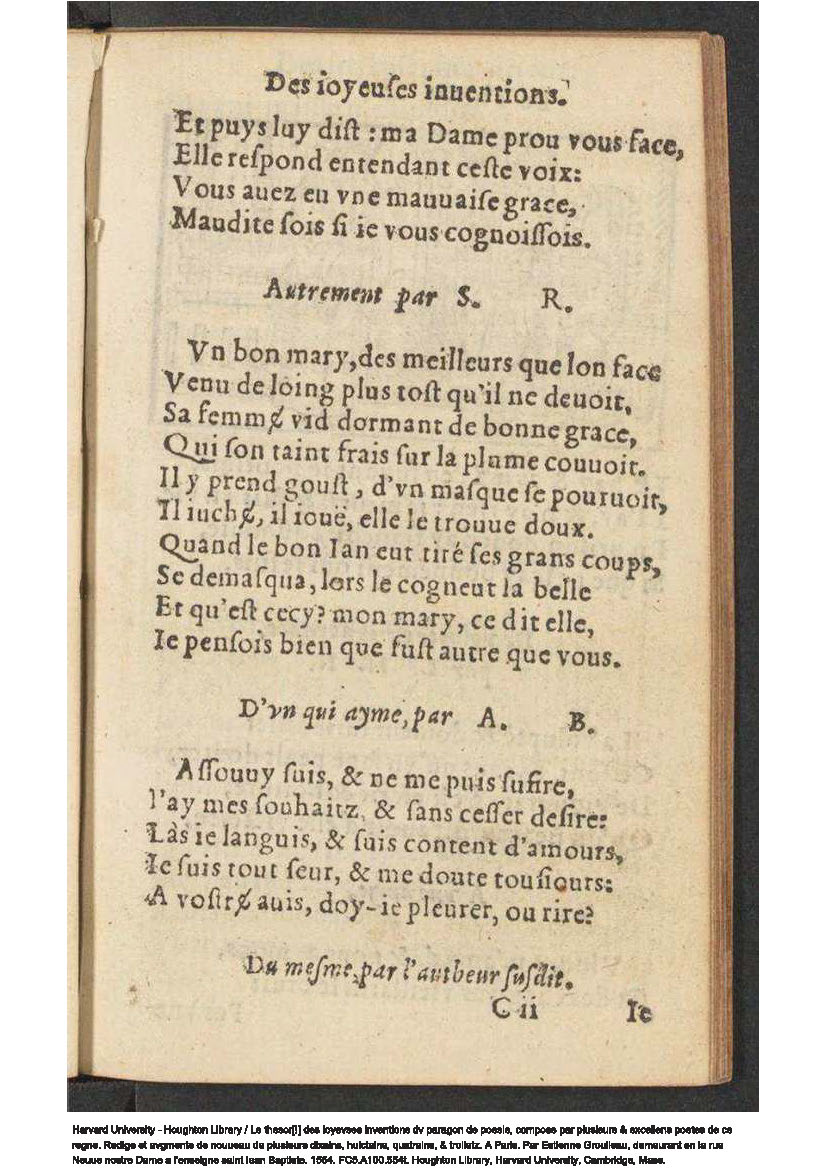 Des ioyeuſes inuentions.
Et puys luy diſt : ma Dame prou vous face,
Elle reſpond entendant ceſte voix:
Vous auez eu vne mauuaiſe grace,
Maudite ſois ſi ie vous cognoiſſois.
Autrement par S. R.
Vn bon mary, des meilleurs que lon face
Venu de loing plus toſt qu'il ne deuoit,
Sa femmɇ vid dormant de bonne grace,
Qui ſon taint frais ſur la plume couuoit.
Il y prend gouſt, d'vn maſque ſe pouruoit,
Il iuchɇ, il iouë, elle le trouue doux.
Quand le bon Ian eut tiré ſes grans coups,
Se demaſqua, lors le cogneut la belle
Et qu'eſt cecy? mon mary, ce dit elle,
Ie penſois bien que fuſt autre que vous.
D'vn qui ayme, par A. B.
Aſſouuy ſuis, & ne me puis ſufire,
I'ay mes ſouhaitz, & ſans ceſſer deſire:
Làs ie languis, & ſuis content d'amours,
Ie ſuis tout ſeur, & me doute touſiours:
A voſtrɇ auis, doy-ie pleurer, ou rire?
Du meſme, par l'autheur ſuſdit.
C ii Ie
Harvard University - Houghton Library / Le thesor[i] des ioyevses inventions dv paragon de poesie, compose par plusieurs & excellens poetes de ce
regne. Redige et avgmente de nouueau de plusieurs dixains, huictains, quatrains, & trolletz. A Paris. Par Estienne Groulleau, demeurant en la rue
Neuue nostre Dame a l'enseigne saint Iean Baptiste. 1554. FC5.A100.554t. Houghton Library, Harvard University, Cambridge, Mass.